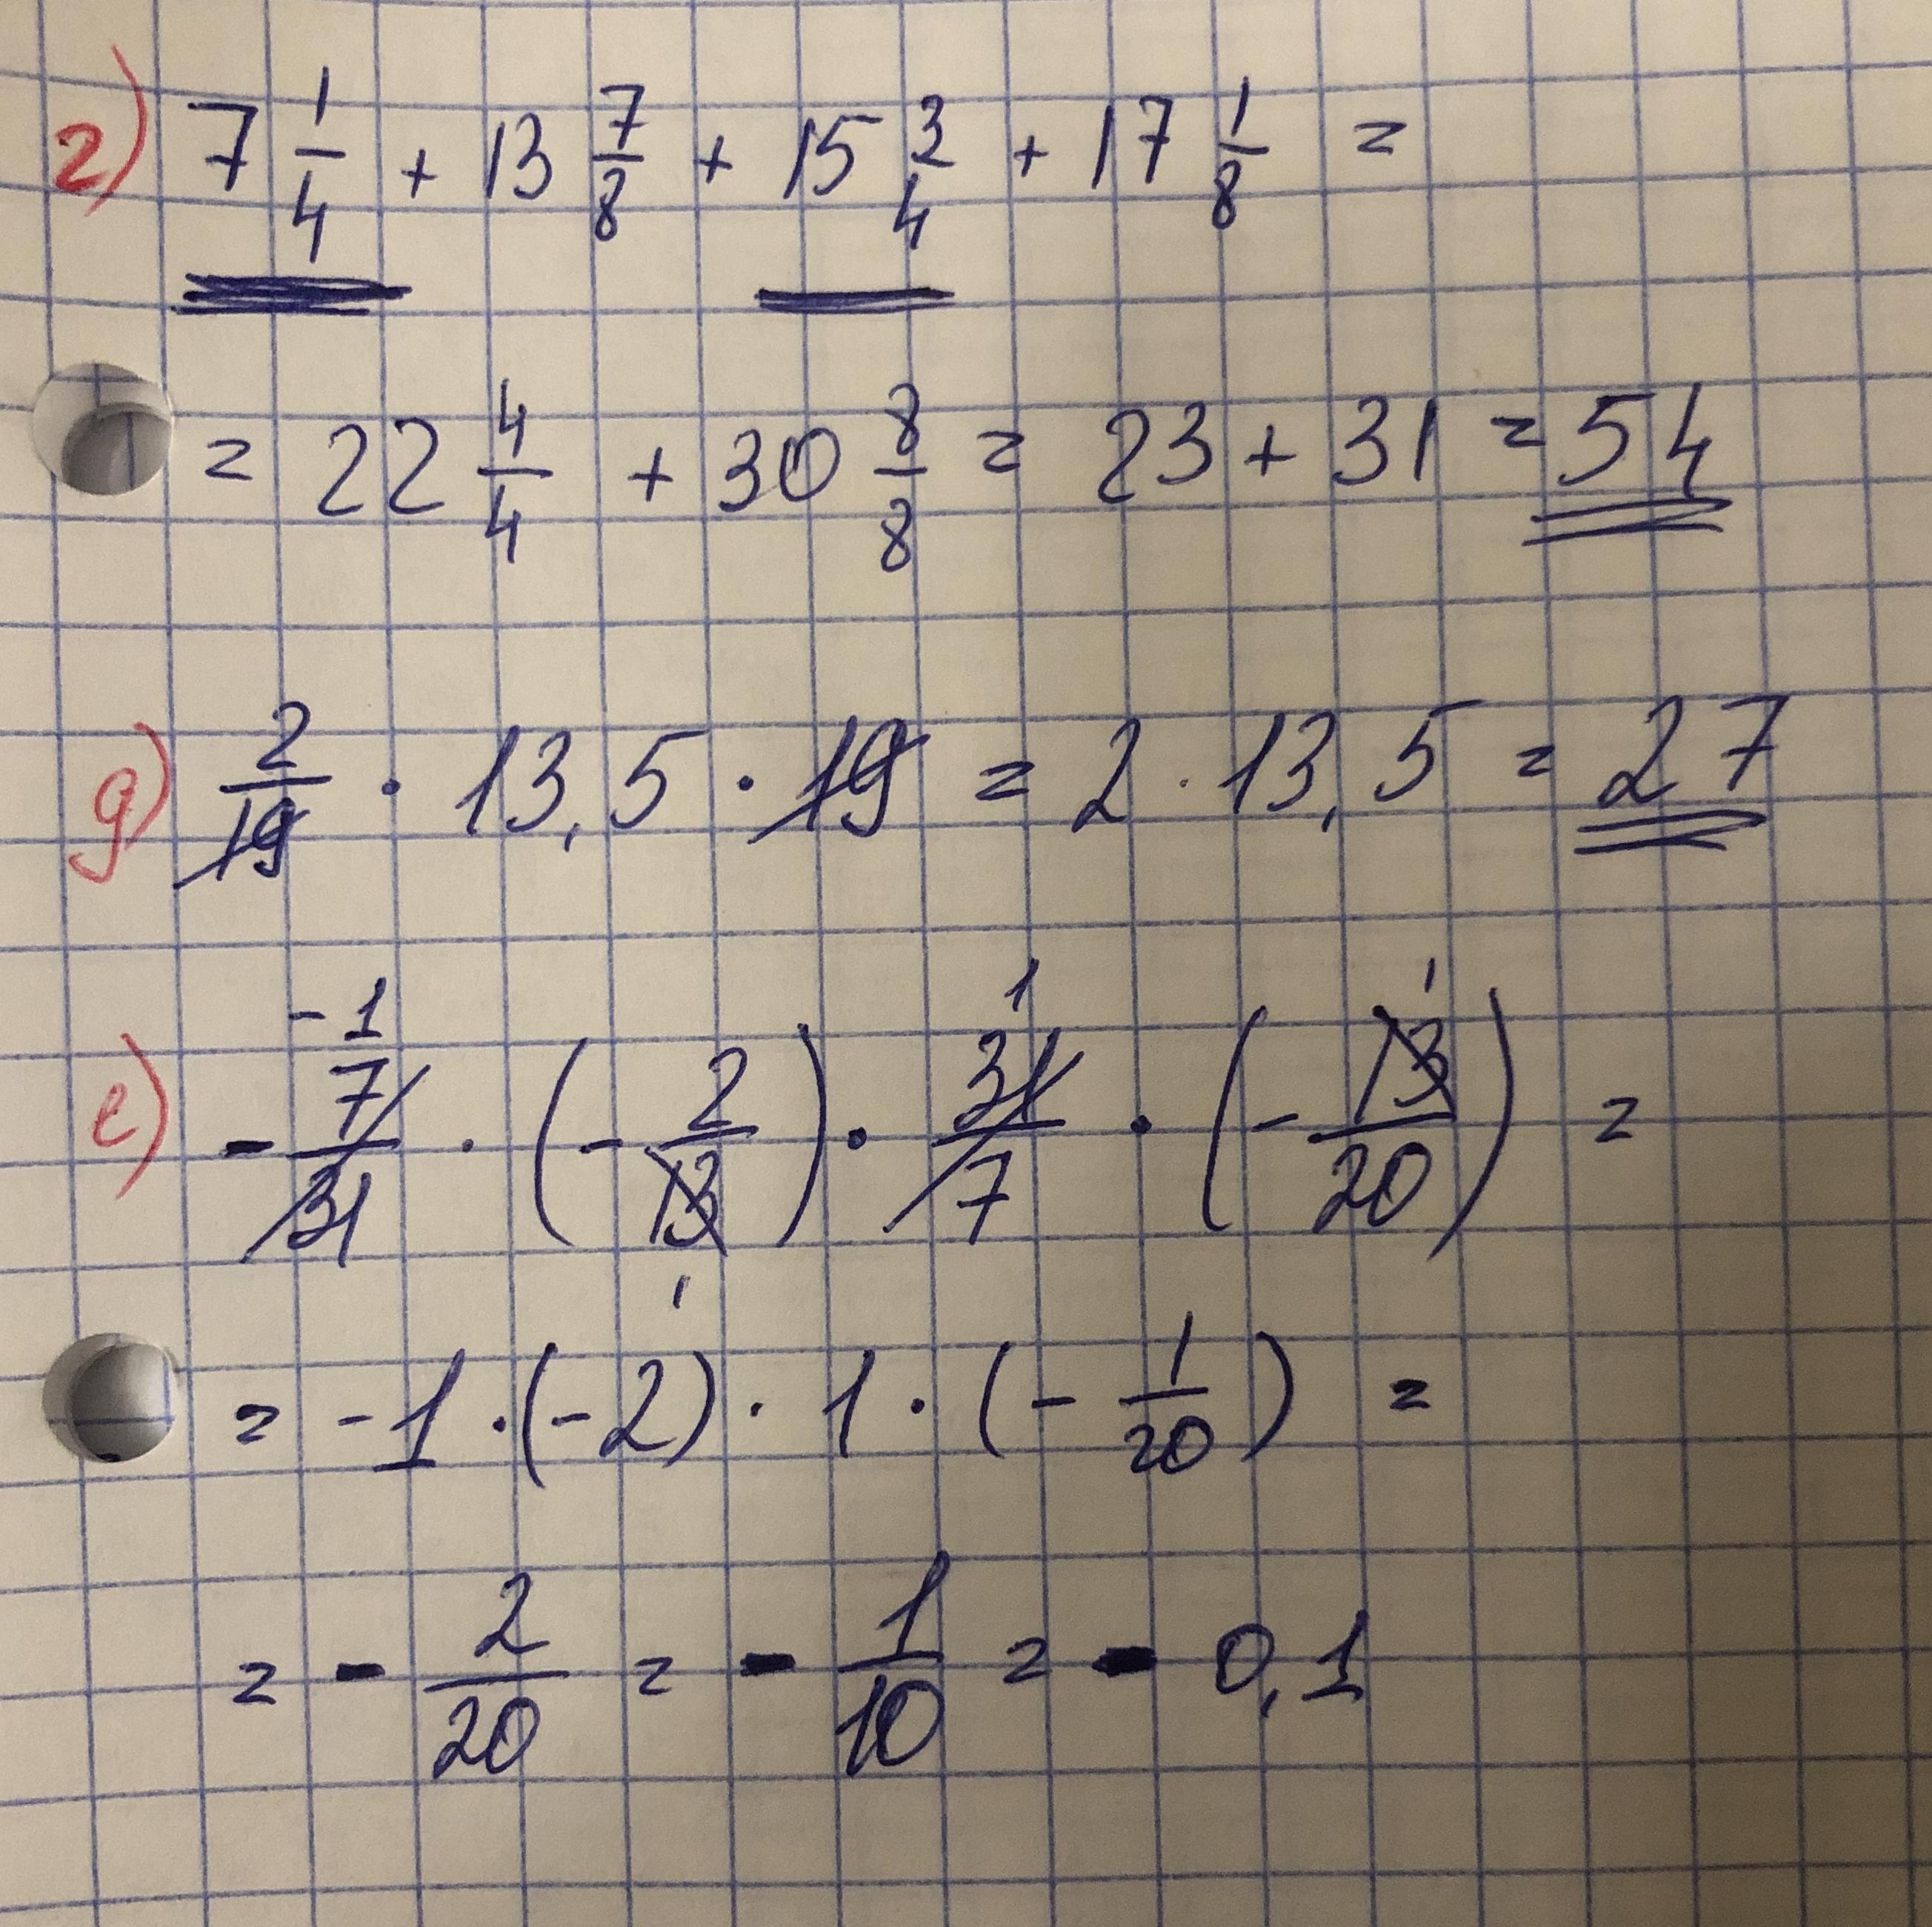 г) 7 1/4 + 13 7/8 + 15 3/4 + 17 1/8 =
= 22 4/4 + 30 8/8 = 23 + 31 = 54
д) 2/19 · 13,5 · 19 = 2 · 13,5 = 27
-1 1 1
е) - 7/31 · (- 2/13) · 31/7 · (- 13/20) =
1
= -1 · (-2) · 1 · (- 1/20) =
= - 2/20 = - 1/10 = - 0,1